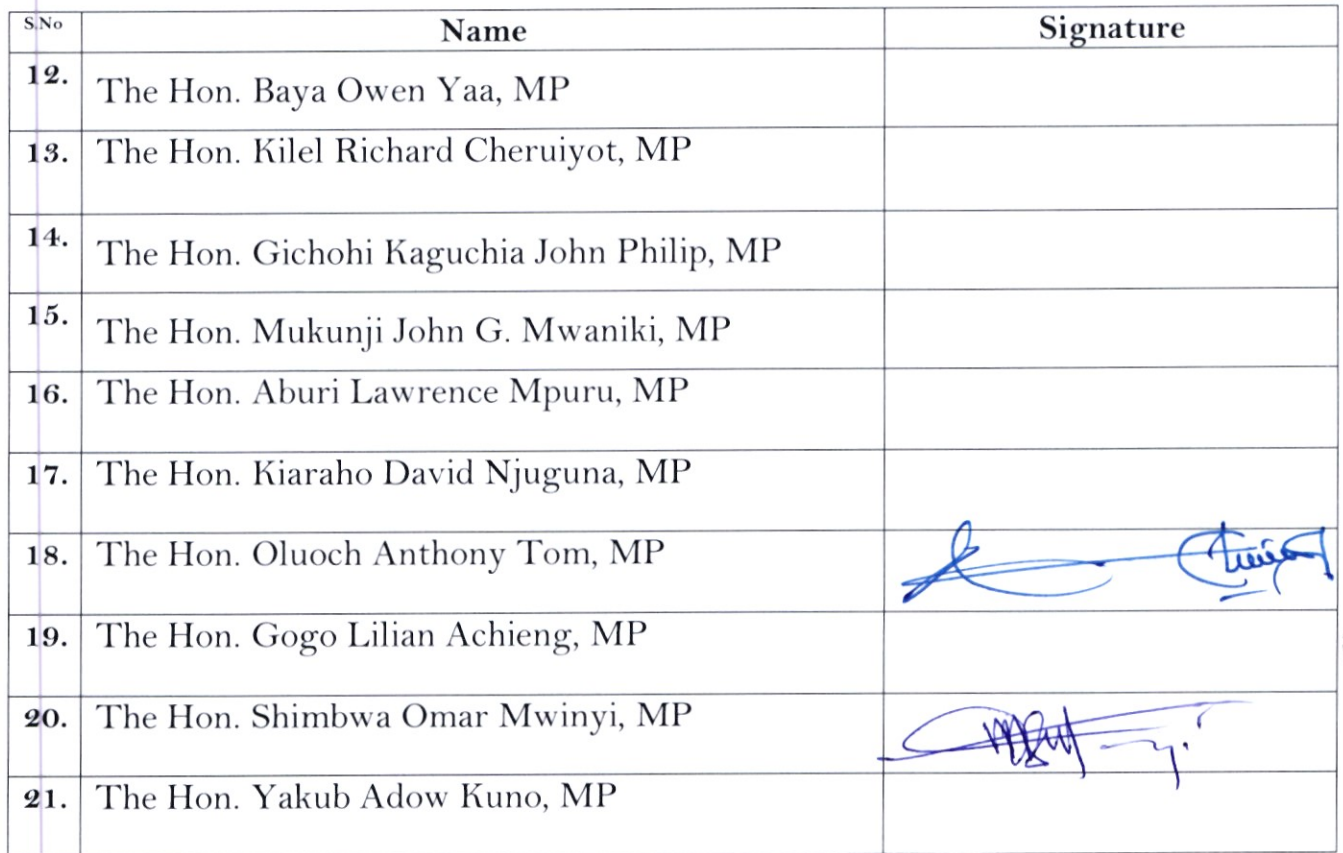 S.No Name Signature
12. The Hon. Baya Owen Yaa, MP
13. The Hon. Kilel Richard Cheruiyot, MP
14. The Hon. Gichohi Kaguchia John Philip, MP
15. The Hon. Mukunji John G. Mwaniki, MP
16. The Hon. Aburi Lawrence Mpuru, MP
17. The Hon. Kiaraho David Njuguna, MP
18. The Hon. Oluoch Anthony Tom, MP
19. The Hon. Gogo Lilian Achieng, MP
20. The Hon. Shimbwa Omar Mwinyi, MP
21. The Hon. Yakub Adow Kuno, MP